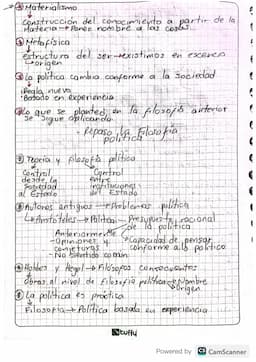 Materialismo
Construcción del conocimiento a partir de la
materia → Pones nombre a las cosas.
Metafísica
estructura del ser → existimos en esencia
→ origen
la política cambia conforme a la Sociedad
Regla nueva
Basado en experiencia
Lo que se planteó en la filosofía anterior
se sigue aplicando
Repaso la Filosofía
política
Teoría y filosofía política
Control Control
desde la entre
Sociedad instituciones
al Estado del Estado
Autores antiguos → Problemas política
Aristóteles → Política → Presupuesto racional
de la política
Anteriormente
- Opiniones y Capacidad de pensar
conjeturas conforme a lo político
- No Sentido común
Hobbes y Hegel → Filósofos
obras al nivel de filosofía política → Nombre
Origen
La política es práctica
Filosofía → Política basada en experiencia
Powered by CS CamScanner